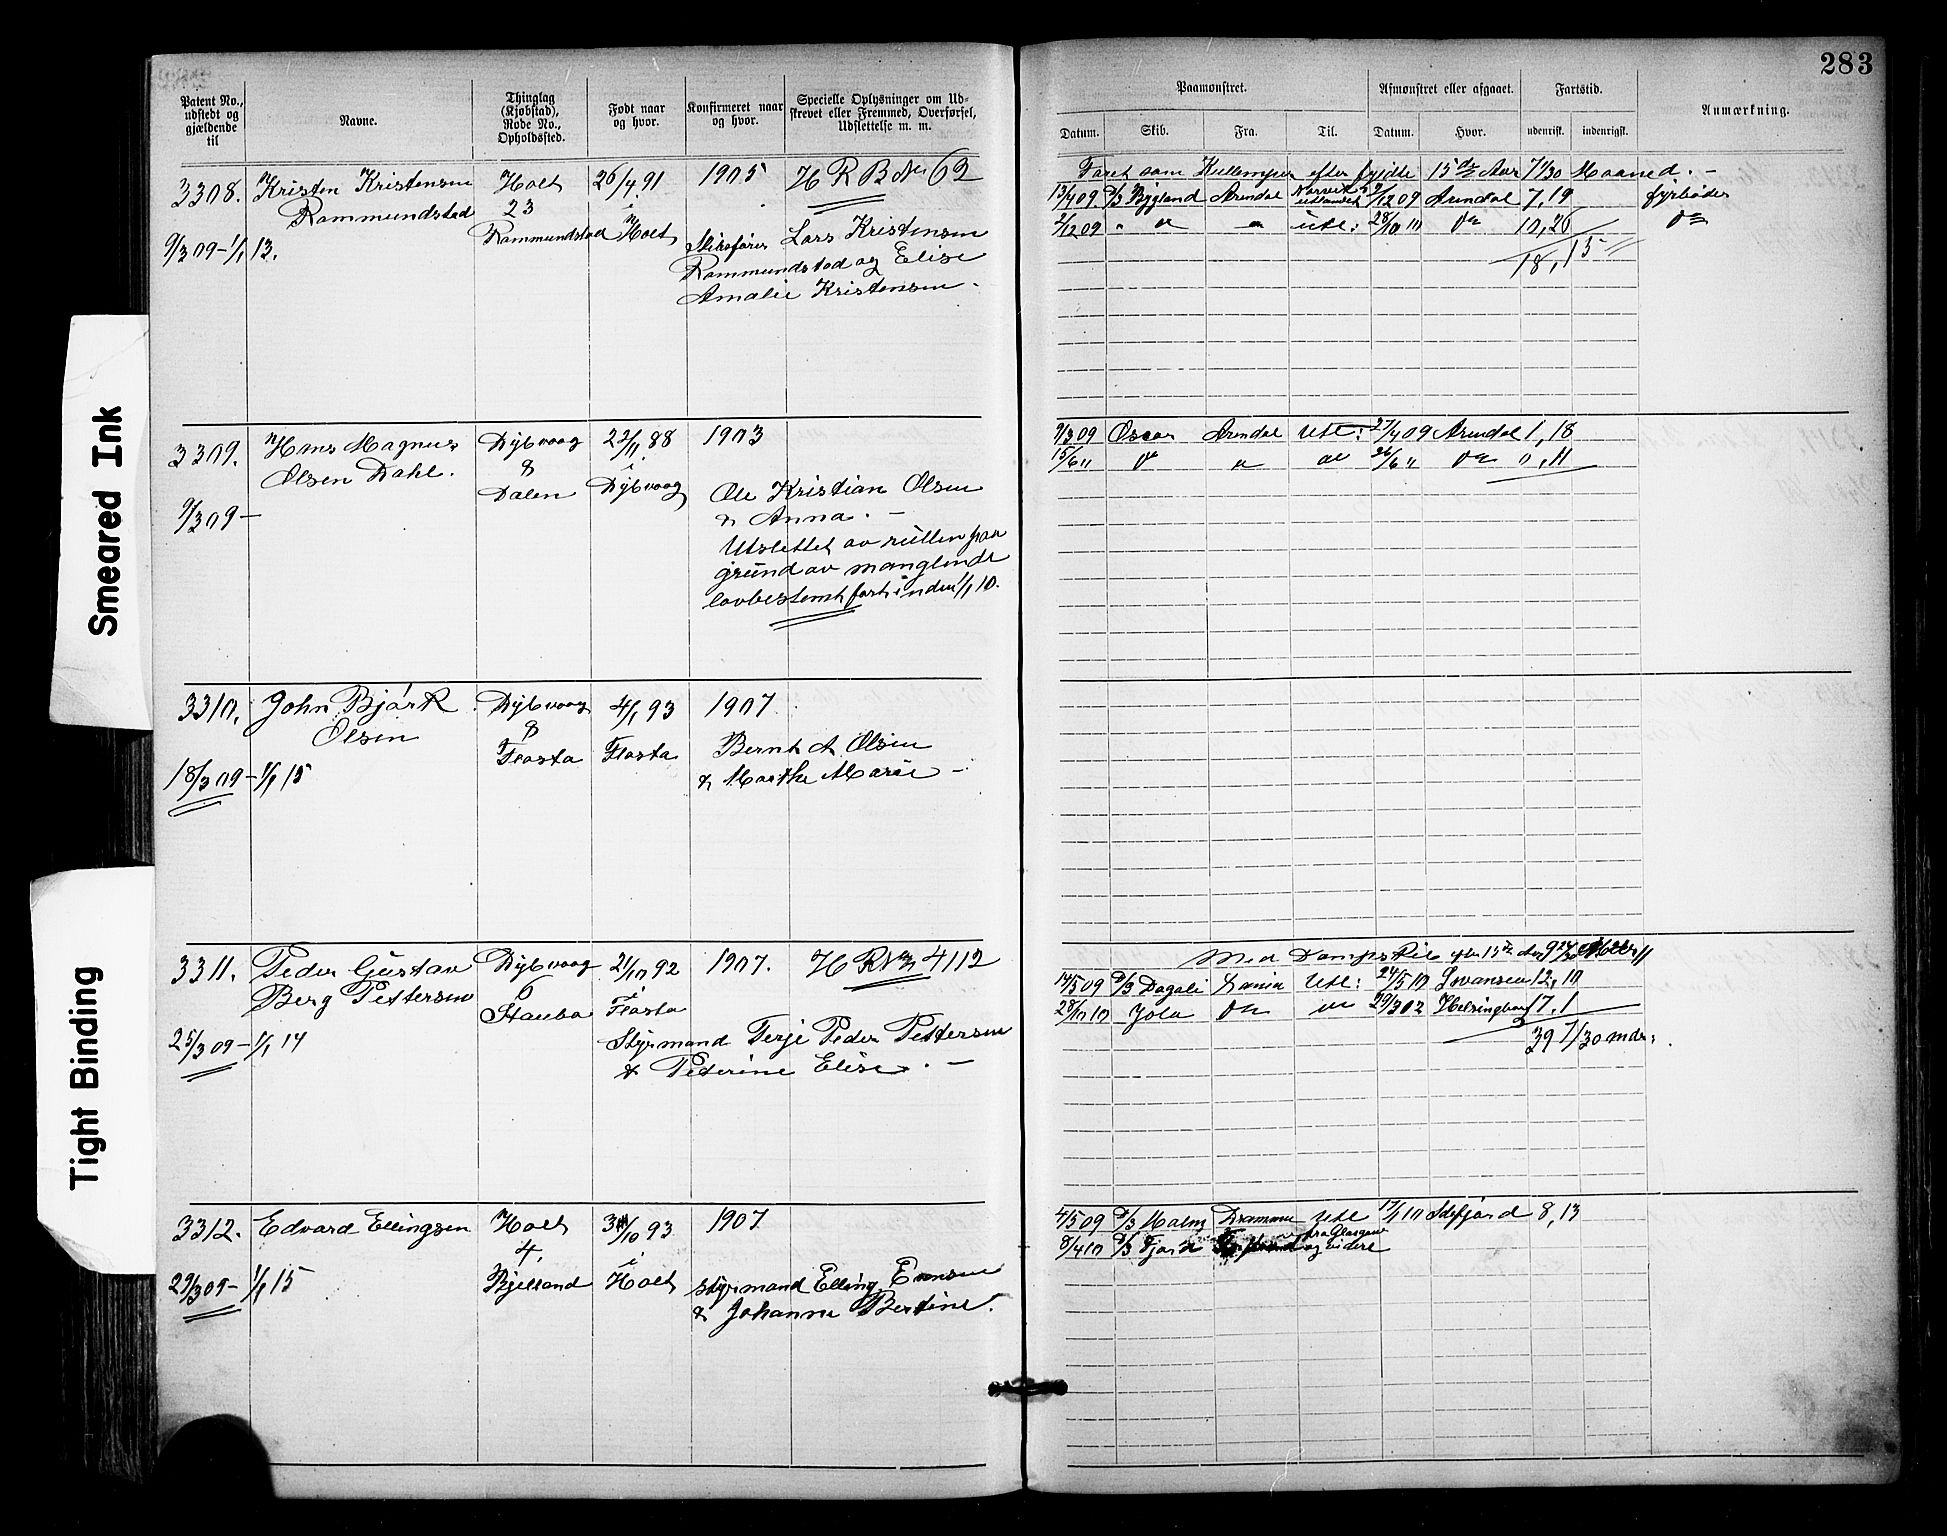 283
Patent No., udstedt og gjældende til
Navne.
Thinglag (Kjøbstad), Rode No., Opholdssted.
Født naar og hvor.
Konfirmeret naar og hvor.
Specielle Oplysninger om Udskrevet eller Fremmed, Overførsel, Udslettelse m. m.
Paamønstret.
Afmønstret eller afgaaet.
Fartstid.
Anmærkning.
Datum.
Skib.
Fra.
Til.
Datum.
Hvor.
udenrigs.
indenrigs.
3308. Kristen Kristensen Holt 26/4 91 1905 H R B No 62
Rammundstad 23 i
9/3 09 – 1/1 13. Rammundstad Holt Lars Kristensen
Rammundstad og Elise
Amalie Kristensen.
Faret som Kullemper efter fyldte 15 Aar 7 1/30 Maaned. –
13/4 09 D/S Bygland Arendal 2/12 09 Arendal 7,19 fyrbøder
2/12 09 " " " utl: 28/10 10 do 10,26 do
18,15
3309. Hans Magnus Dybvaag 22/11 88 1903
Olsen Dahl. 8 i
9/3 09 – Dalen Dybvaag Ole Kristian Olsen
& Anna. –
Utslettet av rullen paa
grund av manglende
lovbestemt fart inden 1/1 10.
9/3 09 Oscar Arendal Utl: 27/4 09 Arendal 1,18
15/6 " do " " 26/6 " do ",11
3310. John Bjørk Dybvaag 4/1 93 1907
Olsen 8
18/3 09 – 1/1 15 Flosta Flosta Bernt A Olsen
& Marthe Marie –
3311. Peder Gustav Dybvaag 21/10 92 1907. H R No 4112
Berg Pettersen 6 i
25/3 09 – 1/1 14 Staubo Flosta
Styrmand Terje Peder Pettersen
& Pederine Elise. –
Med Dampskib
14/5 09 D/S Dagali Utl: 24/5 10 Swansea 12,10
28/10 10 Jola do Helsingborg 17,1
39 1/30 mdr.
3312. Edvard Ellingsen Holt 1907
4. i
29/3 09 – 1/1 15 Bjelland Holt styrmand Elling
& Johanne Bertine.
4/5 09 D/S Malm Drammen Utl 17/1 10 8,13
8/4 10 D/S Fjord fra Glasgow
og videre
Smeared Ink
Tight Binding